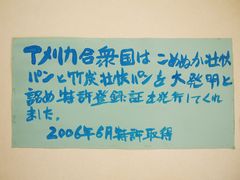 アメリカ合衆国は こめぬか壮快
パンと竹炭壮快パンを大発明と
認め特許登録証を発行してくれ
ました。
2006年6月特許取得